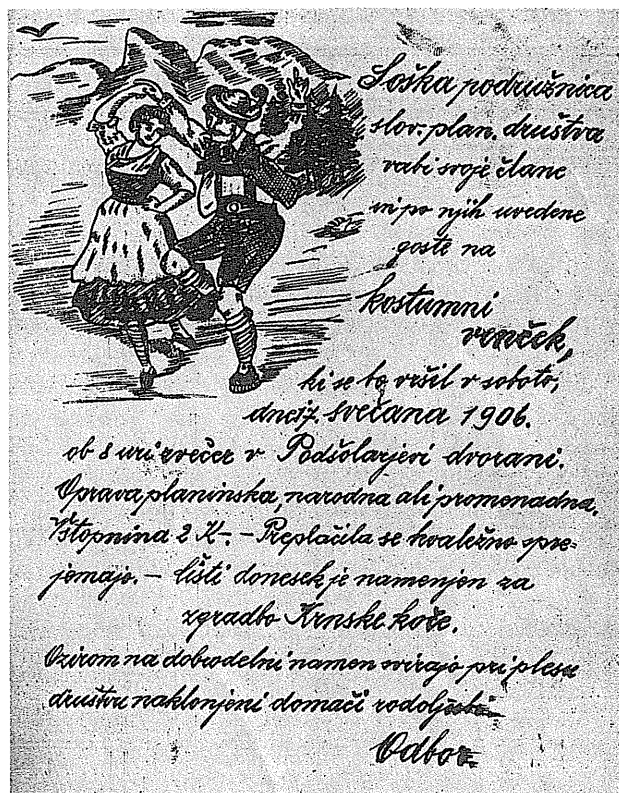 Soška podružnica
slov. plan. društva
vabi svoje člane
in po njih uvedene
goste na
kostumni
venček,
ki se bo vršil v soboto,
dne 17. svečana 1906.
ob 8 uri zvečer v Podšolarjevi dvorani.
Oprava planinska, narodna ali promenadna.
Vstopnina 2 K-. - Preplačila se hvaležno spre-
jemajo. - Čisti donesek je namenjen za
zgradbo Krnske koče.
Ozirom na dobrodelni namen svirajo pri plesu
društvu naklonjeni domači rodoljubi.
Odbor.